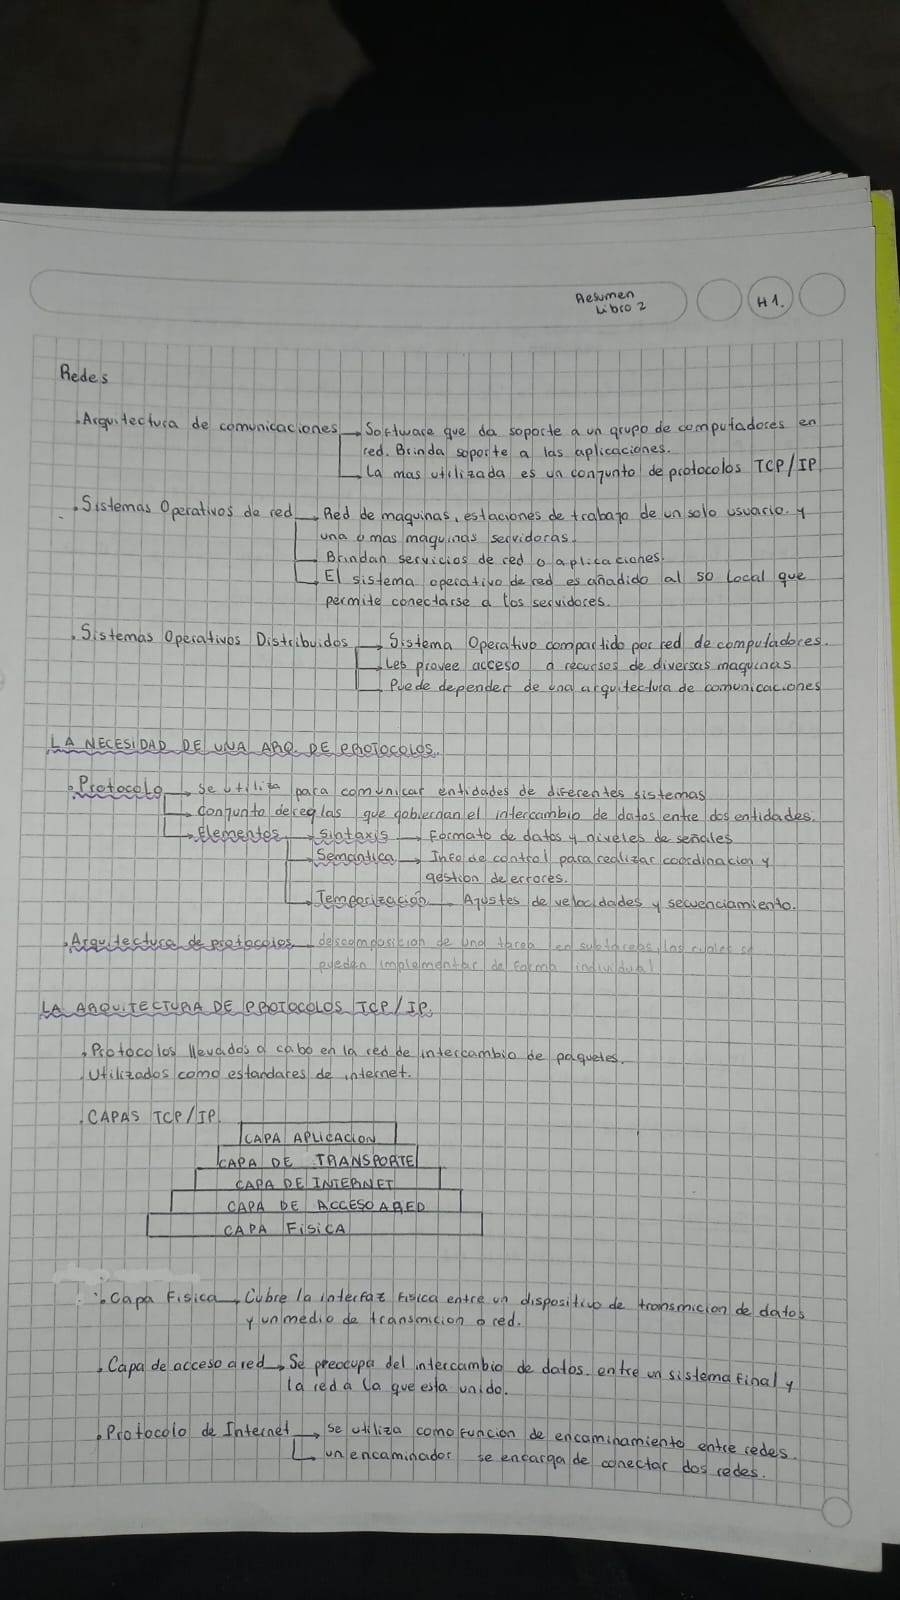 Resumen
Libro 2
H1.
Redes
. Arquitectura de comunicaciones → Software que da soporte a un grupo de computadores en
red. Brinda soporte a las aplicaciones.
→ La mas utilizada es un conjunto de protocolos TCP/IP
. Sistemas Operativos de red → Red de maquinas, estaciones de trabajo de un solo usuario y
una o mas maquinas servidoras.
→ Brindan servicios de red o aplicaciones.
→ El sistema operativo de red es añadido al SO local que
permite conectarse a los servidores.
. Sistemas Operativos Distribuidos → Sistema Operativo compartido por red de computadores.
→ Les provee acceso a recursos de diversas maquinas
→ Puede depender de una arquitectura de comunicaciones
LA NECESIDAD DE UNA ARQ. DE PROTOCOLOS.
. Protocolo → se utiliza para comunicar entidades de diferentes sistemas
→ Conjunto de reglas que gobiernan el intercambio de datos entre dos entidades.
→ Elementos → Sintaxis → Formato de datos y niveles de señales
→ Semántica → Info de control para realizar coordinacion y
gestion de errores.
→ Temporización → Ajustes de velocidades y secuenciamiento.
. Arquitectura de protocolos → descomposicion de una tarea en subtareas, las cuales
pueden implementar de forma individual
LA ARQUITECTURA DE PROTOCOLOS TCP/IP.
. Protocolos llevados a cabo en la red de intercambio de paquetes.
Utilizados como estandares de internet.
. CAPAS TCP/IP.
CAPA APLICACION
CAPA DE TRANSPORTE
CAPA DE INTERNET
CAPA DE ACCESO A RED
CAPA FISICA
. Capa Fisica → Cubre la interfaz fisica entre un dispositivo de transmicion de datos
y un medio de transmicion o red.
. Capa de acceso a red → Se preocupa del intercambio de datos entre un sistema final y
la red a la que esta unido.
. Protocolo de Internet → se utiliza como funcion de encaminamiento entre redes.
→ un encaminador se encarga de conectar dos redes.